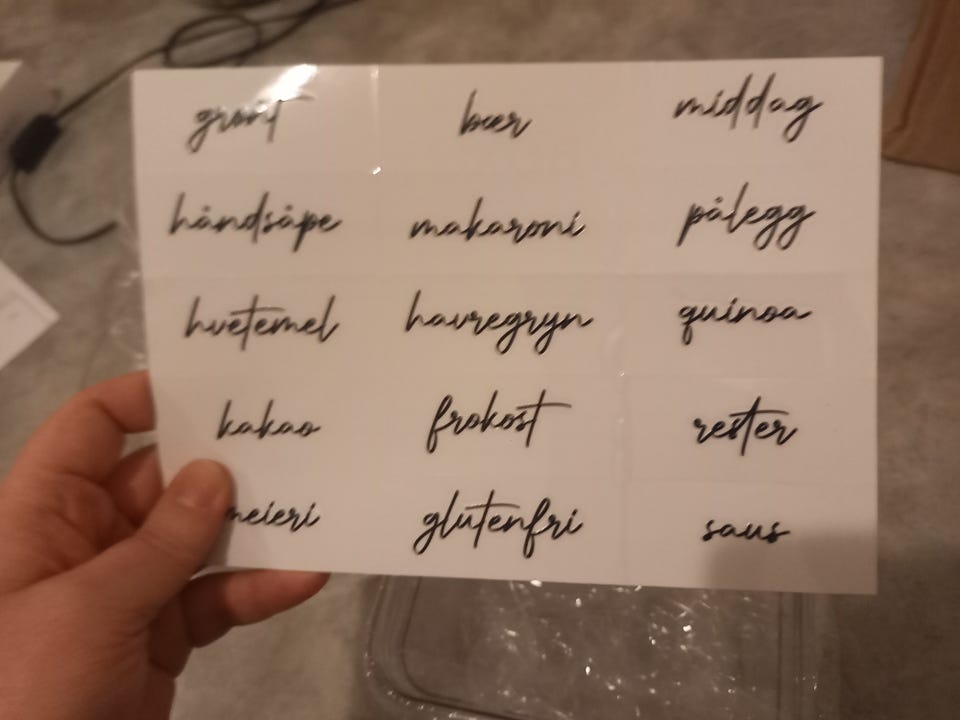 grønt bær middag
håndsåpe makaroni pålegg
hvetemel havregryn quinoa
kakao frokost rester
meieri glutenfri saus